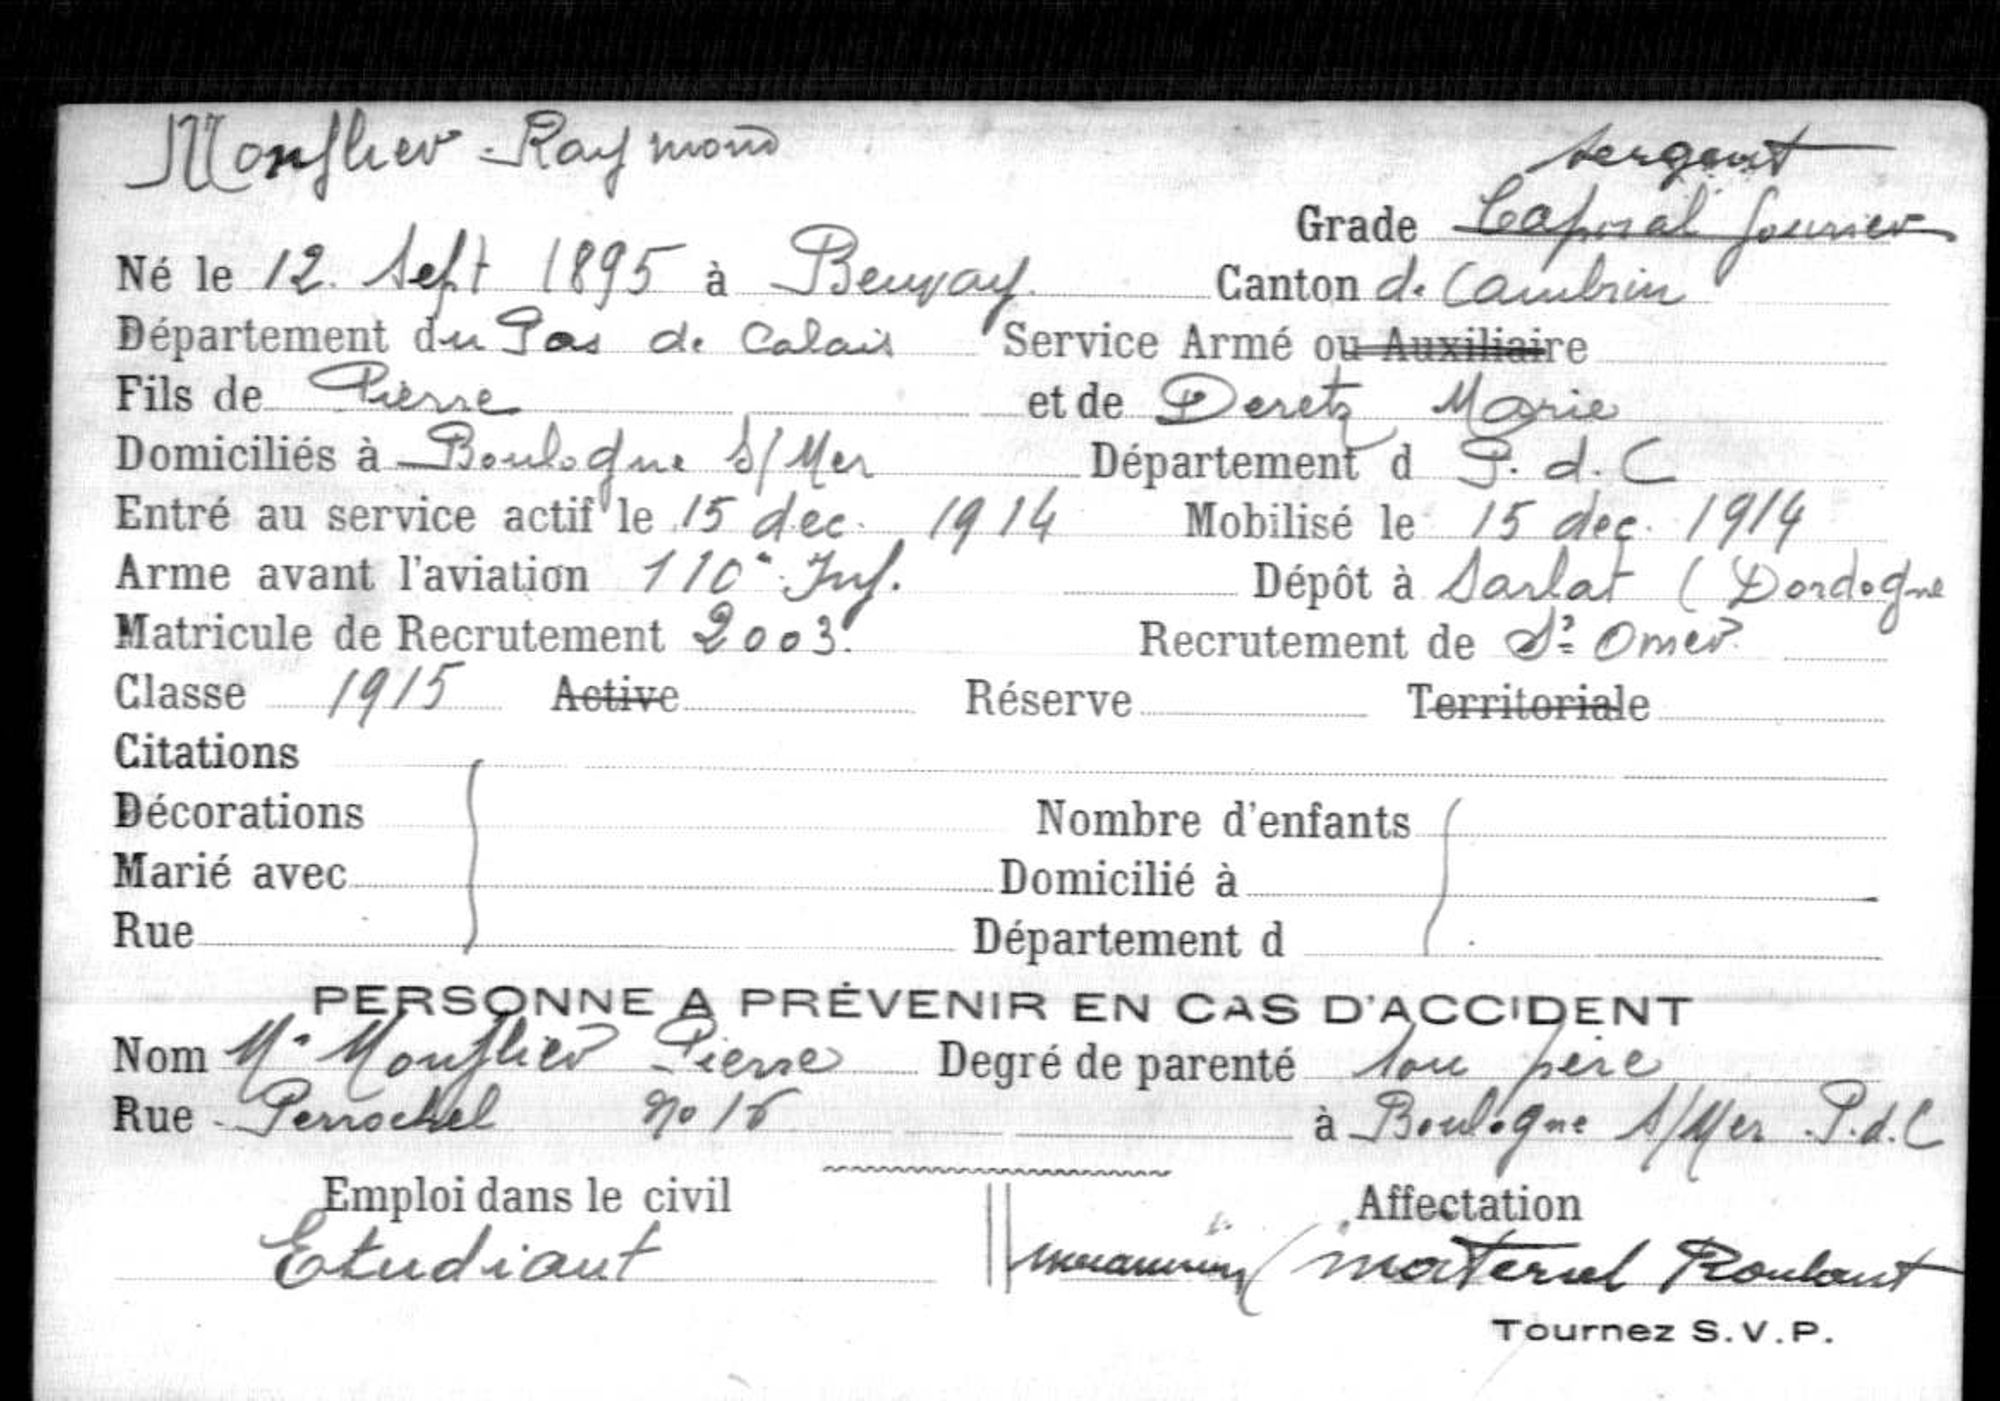 Monflier Raymond
Sergent
Grade Caporal fourrier
Né le 12. Sept 1895 à Beuvry Canton de Cambrin
Département du Pas de Calais Service Armé ou Auxiliaire
Fils de Pierre et de Deretz Marie
Domiciliés à Boulogne s/Mer Département d P. d. C
Entré au service actif le 15 dec. 1914 Mobilisé le 15 dec. 1914
Arme avant l'aviation 110e Inf. Dépôt à Sarlat (Dordogne
Matricule de Recrutement 2003. Recrutement de St Omer
Classe 1915 Active Réserve Territoriale
Citations
Décorations Nombre d'enfants
Marié avec Domicilié à
Rue Département d
PERSONNE A PRÉVENIR EN CAS D'ACCIDENT
Nom Mr Monflier Pierre Degré de parenté son père
Rue Perrochel No 16 à Boulogne s/Mer P.d.C
Emploi dans le civil Affectation
Etudiant materiel Roulant
Tournez S.V.P.